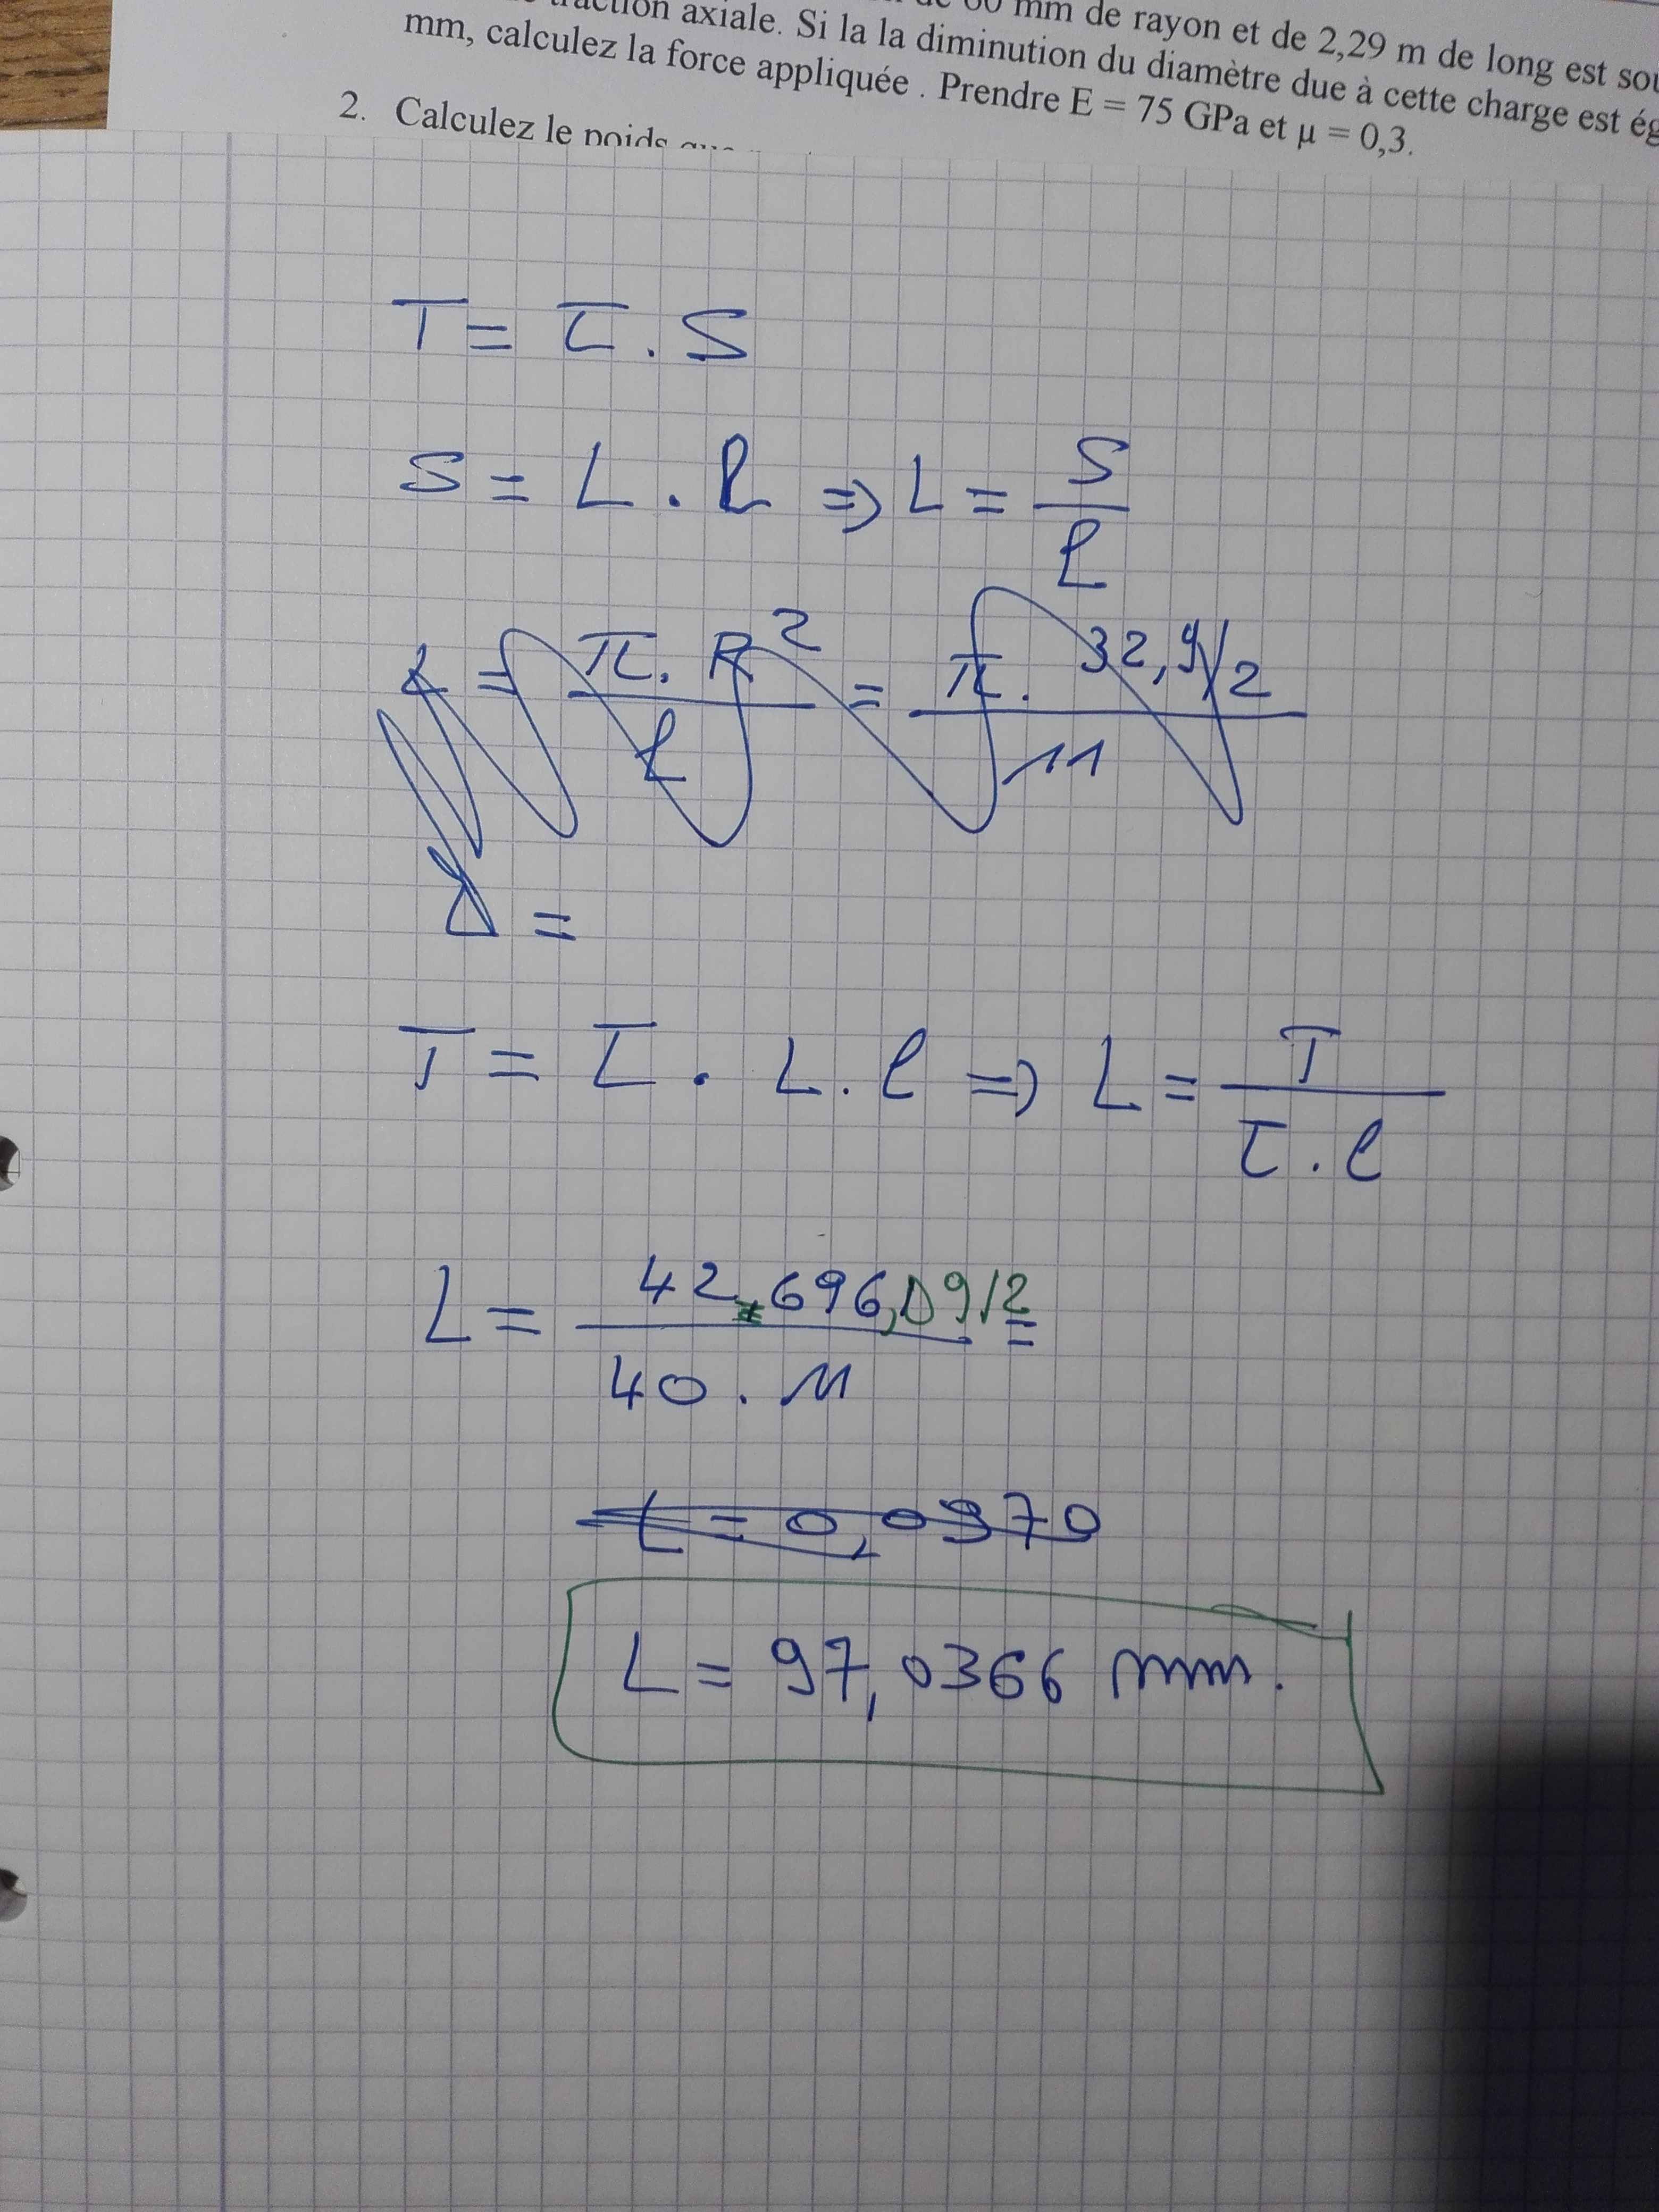 de 60 mm de rayon et de 2,29 m de long est
traction axiale. Si la la diminution du diamètre due à cette charge est
mm, calculez la force appliquée . Prendre E = 75 GPa et µ = 0,3.
2. Calculez le poids que
T = τ . S
S = L . l => L = S / l
L = π. R² / l = π. 32,9/2 / 11
=
T = τ . L . l => L = T / τ . l
L = 42696,0912 / 40 . 11 =
L = 0,0970
L = 97,0366 mm.